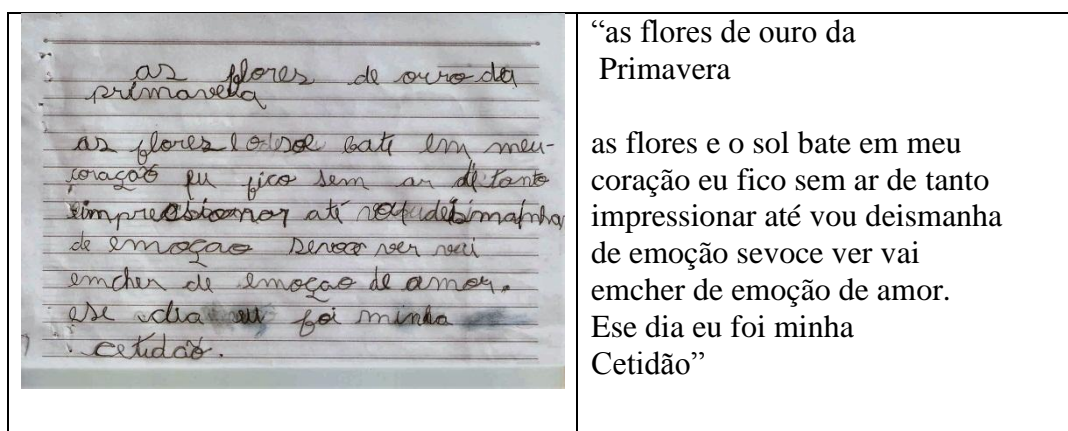 as flores de ouro da
primavera
as flores e o sol bate em meu-
coração eu fico sem ar de tanto
impressionar até
de emoçao sevoce ver vai
emcher de emoçao de amor.
ese dia eu foi minha
cetidão.
“as flores de ouro da
Primavera
as flores e o sol bate em meu
coração eu fico sem ar de tanto
impressionar até vou deismanha
de emoção sevoce ver vai
emcher de emoção de amor.
Ese dia eu foi minha
Cetidão”